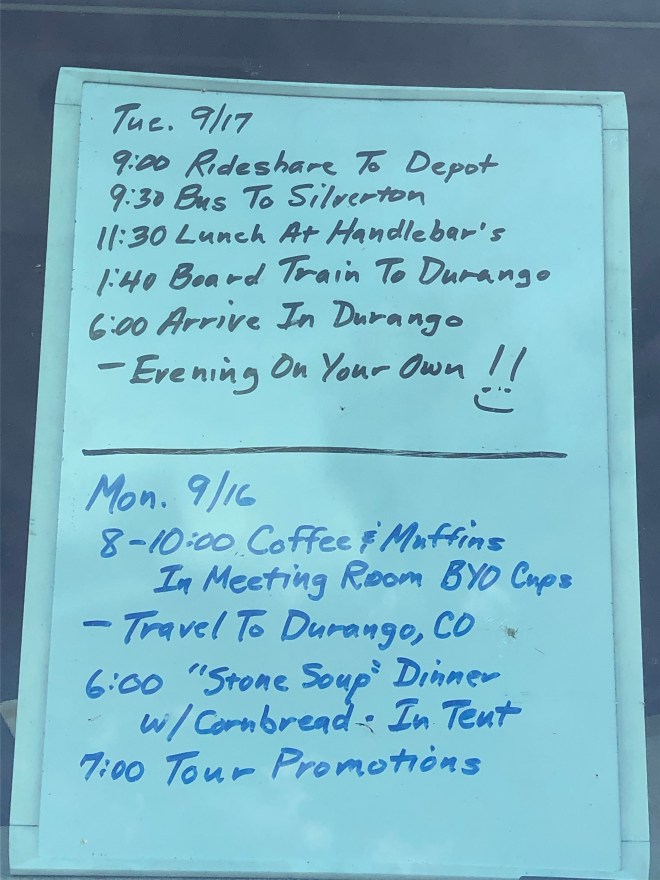 Tue. 9/17
9:00 Rideshare To Depot
9:30 Bus To Silverton
11:30 Lunch At Handlebar's
1:40 Board Train To Durango
6:00 Arrive In Durango
- Evening On Your Own !!
Mon. 9/16
8-10:00 Coffee & Muffins
In Meeting Room BYO Cups
- Travel To Durango, CO
6:00 "Stone Soup" Dinner
w/ Cornbread - In Tent
7:00 Tour Promotions